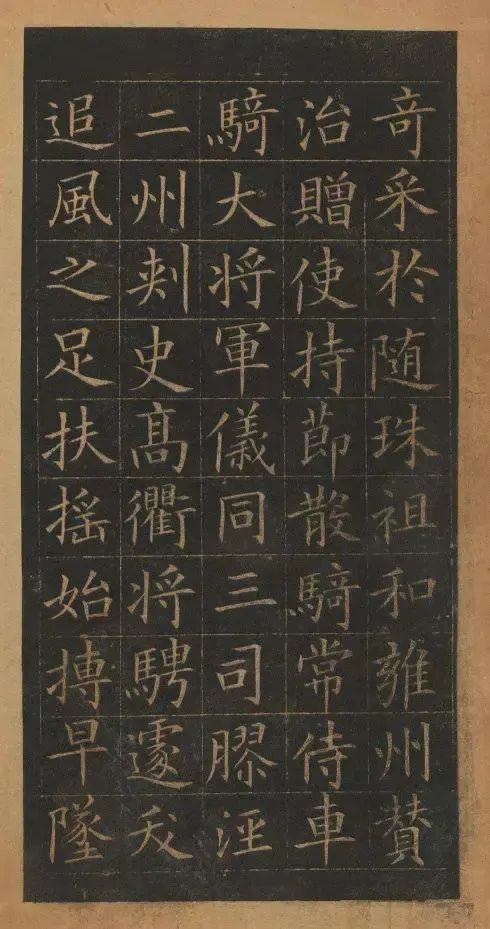 奇采於随珠祖和雍州贊
治贈使持節散騎常侍車
騎大将軍儀同三司膠涇
二州刺史高衢将騁遽夭
追風之足扶摇始搏早墜